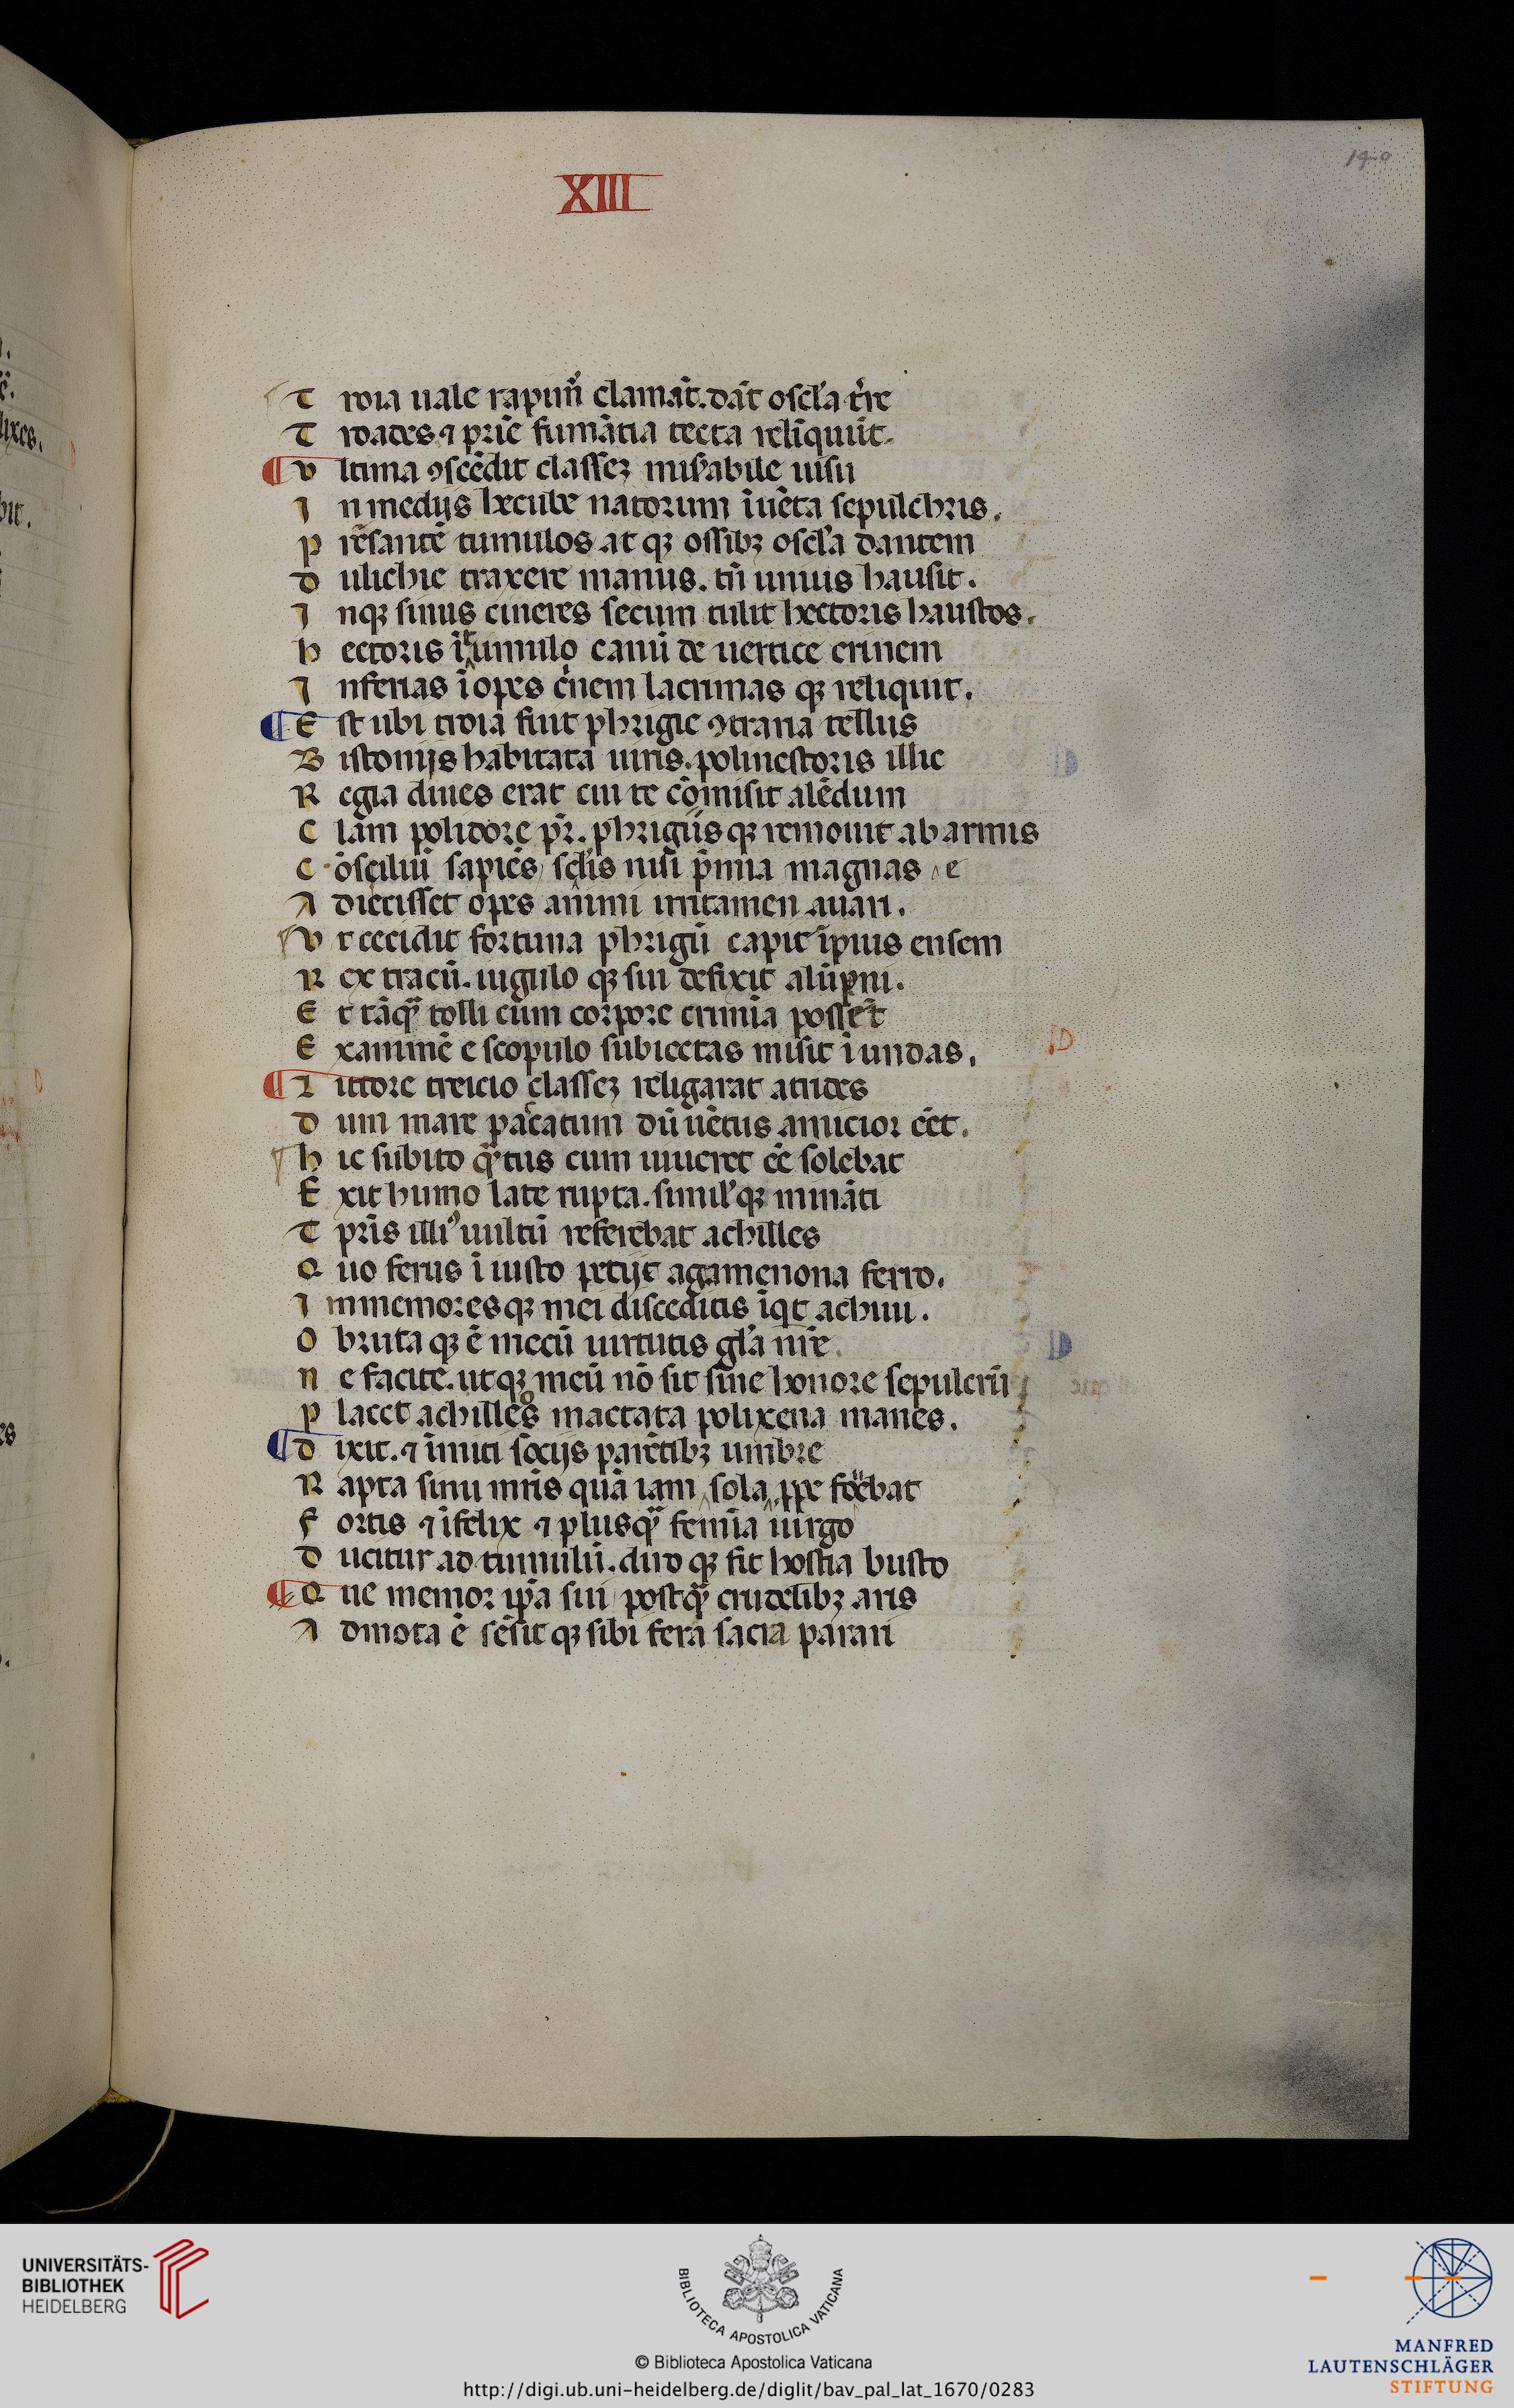 XIII
T roia uale rapimr̄ clamāt. dāt oscl̄a t̓re
T roades ⁊ pr̄ie fumātia tecta relīquūt.
¶ V ltima ꝯscēdit classeꝫ mis̓abile uisu
I n medijs hecube natorum īuēta sepulchris.
P rēsantē tumulos at qꝫ ossibꝫ oscl̄a dantem
D ulichie traxere manus. tn̄ unius hausit.
I nqꝫ sinus cineres secum tulit hectoris haustos.
H ectoris ī tumulo canū de uertice crinem
I nferias īopes c̓nem lacrimas qꝫ reliquit.
¶ E st ubi troia fuit phrigie ꝯtraria tellus
B istonijs habitata uiris. polinestoris illic
R egia diues erat cui te cōmisit alēdum
C lam polidore pr̄. phrigiis qꝫ remouit ab armis
C ōsciliū sapiēs scl̓is nisi p̄mia magnas e
A diecisset opes animi irritamen auari.
V t cecidit fortuna phrigū capit īpius ensem
R ex tracū. iugulo qꝫ sui defixit alūpni.
E t tāqᷓ tolli cum corpore crimīa possēt
E xanimē e scopulo subiectas misit ī undas.
¶ L ittore treicio classeꝫ religarat atrides
D um mare pacatum dū uētus amicior eēt.
H ic subito qᷓtus cum uiueret eē solebat
E xit humo late rupta. simil̓qꝫ mināti
T pr̄is illi᾽ uultū referebat achilles
Q uo ferus ī iusto petijt agamenona ferro.
I mmemores qꝫ mei disceditis īqͥt achiui.
O bruta qꝫ ē mecū uirtutis gl̄a nr̄e.
N e facite. ut qꝫ meū nō sit sine honore sepulcrū
P lacet achilleos mactata polixena manes.
¶ D ixit. ⁊ īmiti socijs parētibꝫ umbre
R apta sinu mr̄is quā iam sola ꝓpe fouebat
F ortis ⁊ īfelix ⁊ plusqᷓ femīa uirgo
D ucitur ad tumulū. diro qꝫ fit hostia busto
¶ Q ue memor ip̄a sui postqᷓ crudelibꝫ aris
A dmota ē sēsit qꝫ sibi fera sacra parari
UNIVERSITÄTS-
BIBLIOTHEK
HEIDELBERG
BIBLIOTECA APOSTOLICA VATICANA
© Biblioteca Apostolica Vaticana
http://digi.ub.uni-heidelberg.de/diglit/bav_pal_lat_1670/0283
MANFRED
LAUTENSCHLÄGER
STIFTUNG